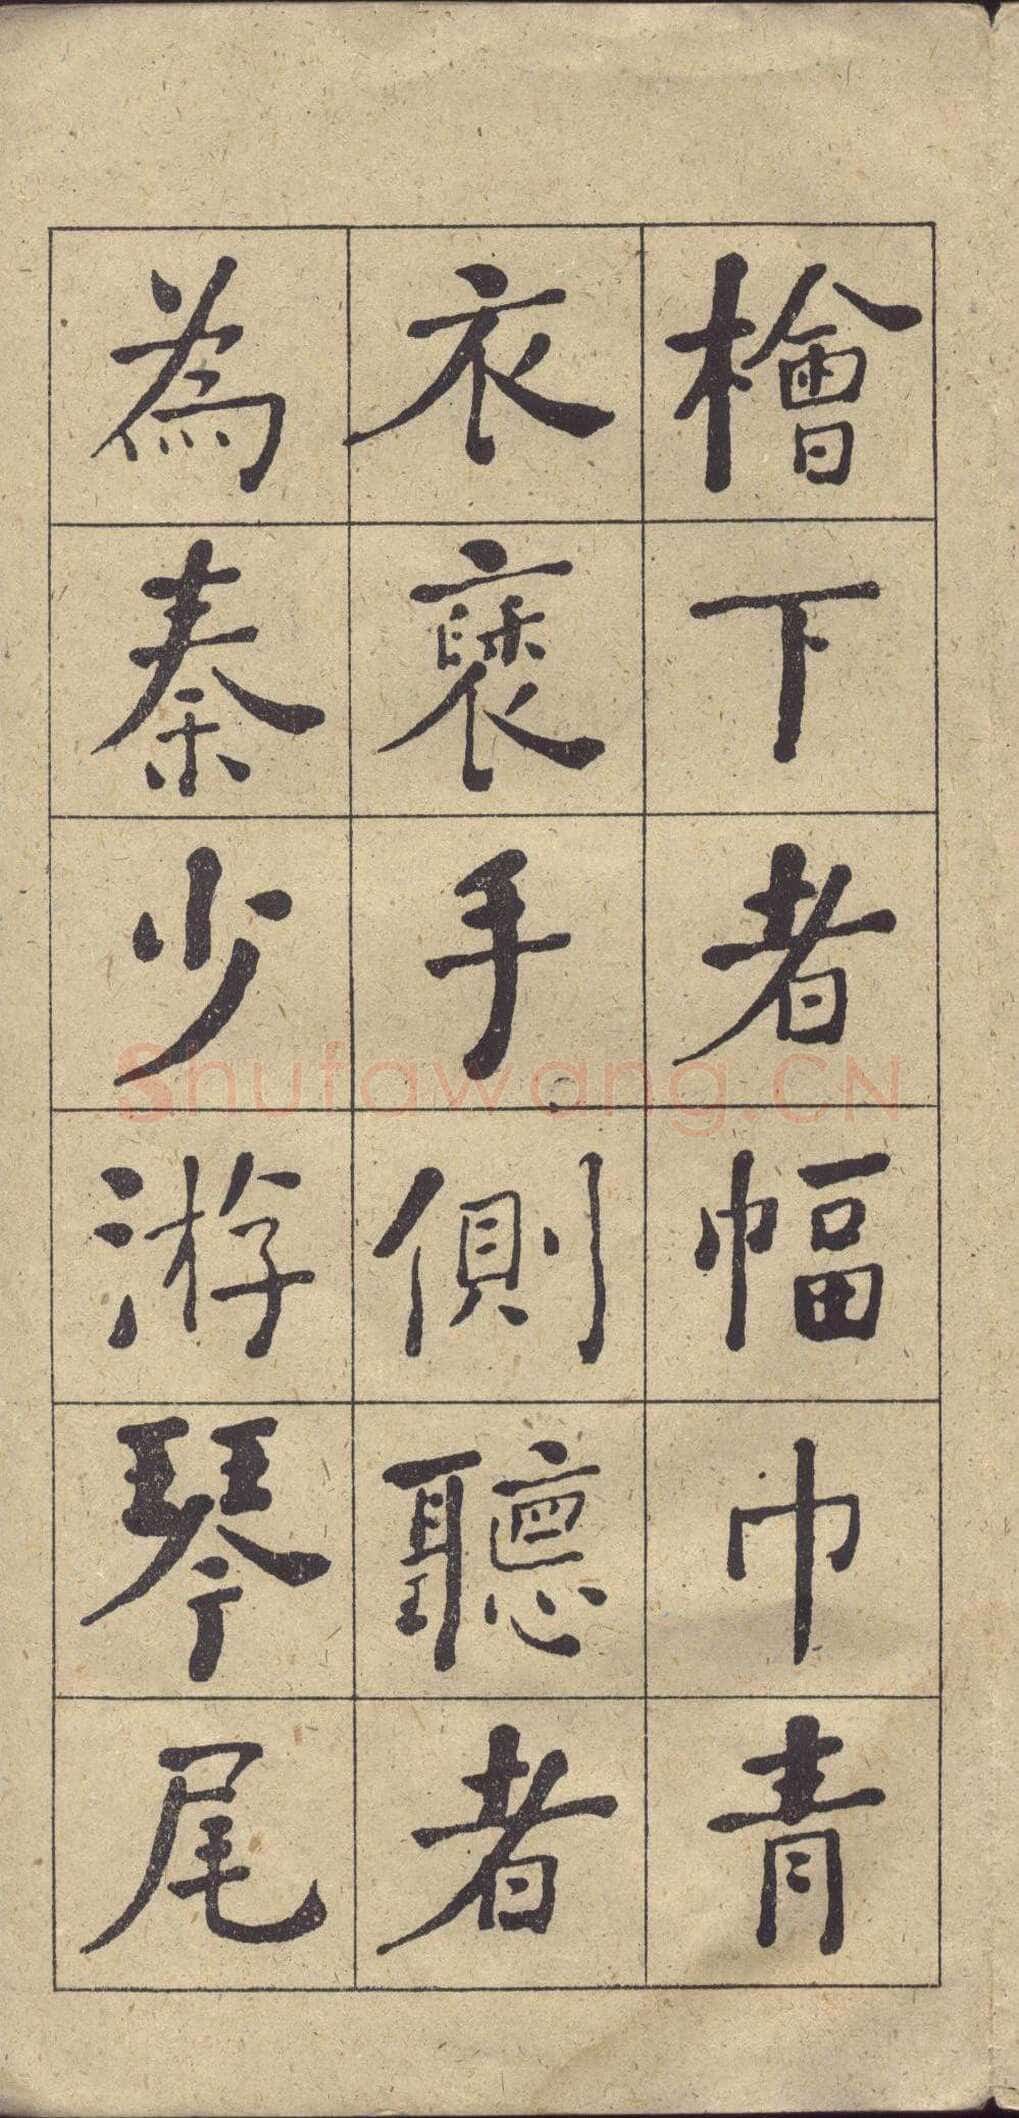 檜下者幅巾青
衣褎手側聽者
為秦少游琴尾
Shufawang.CN